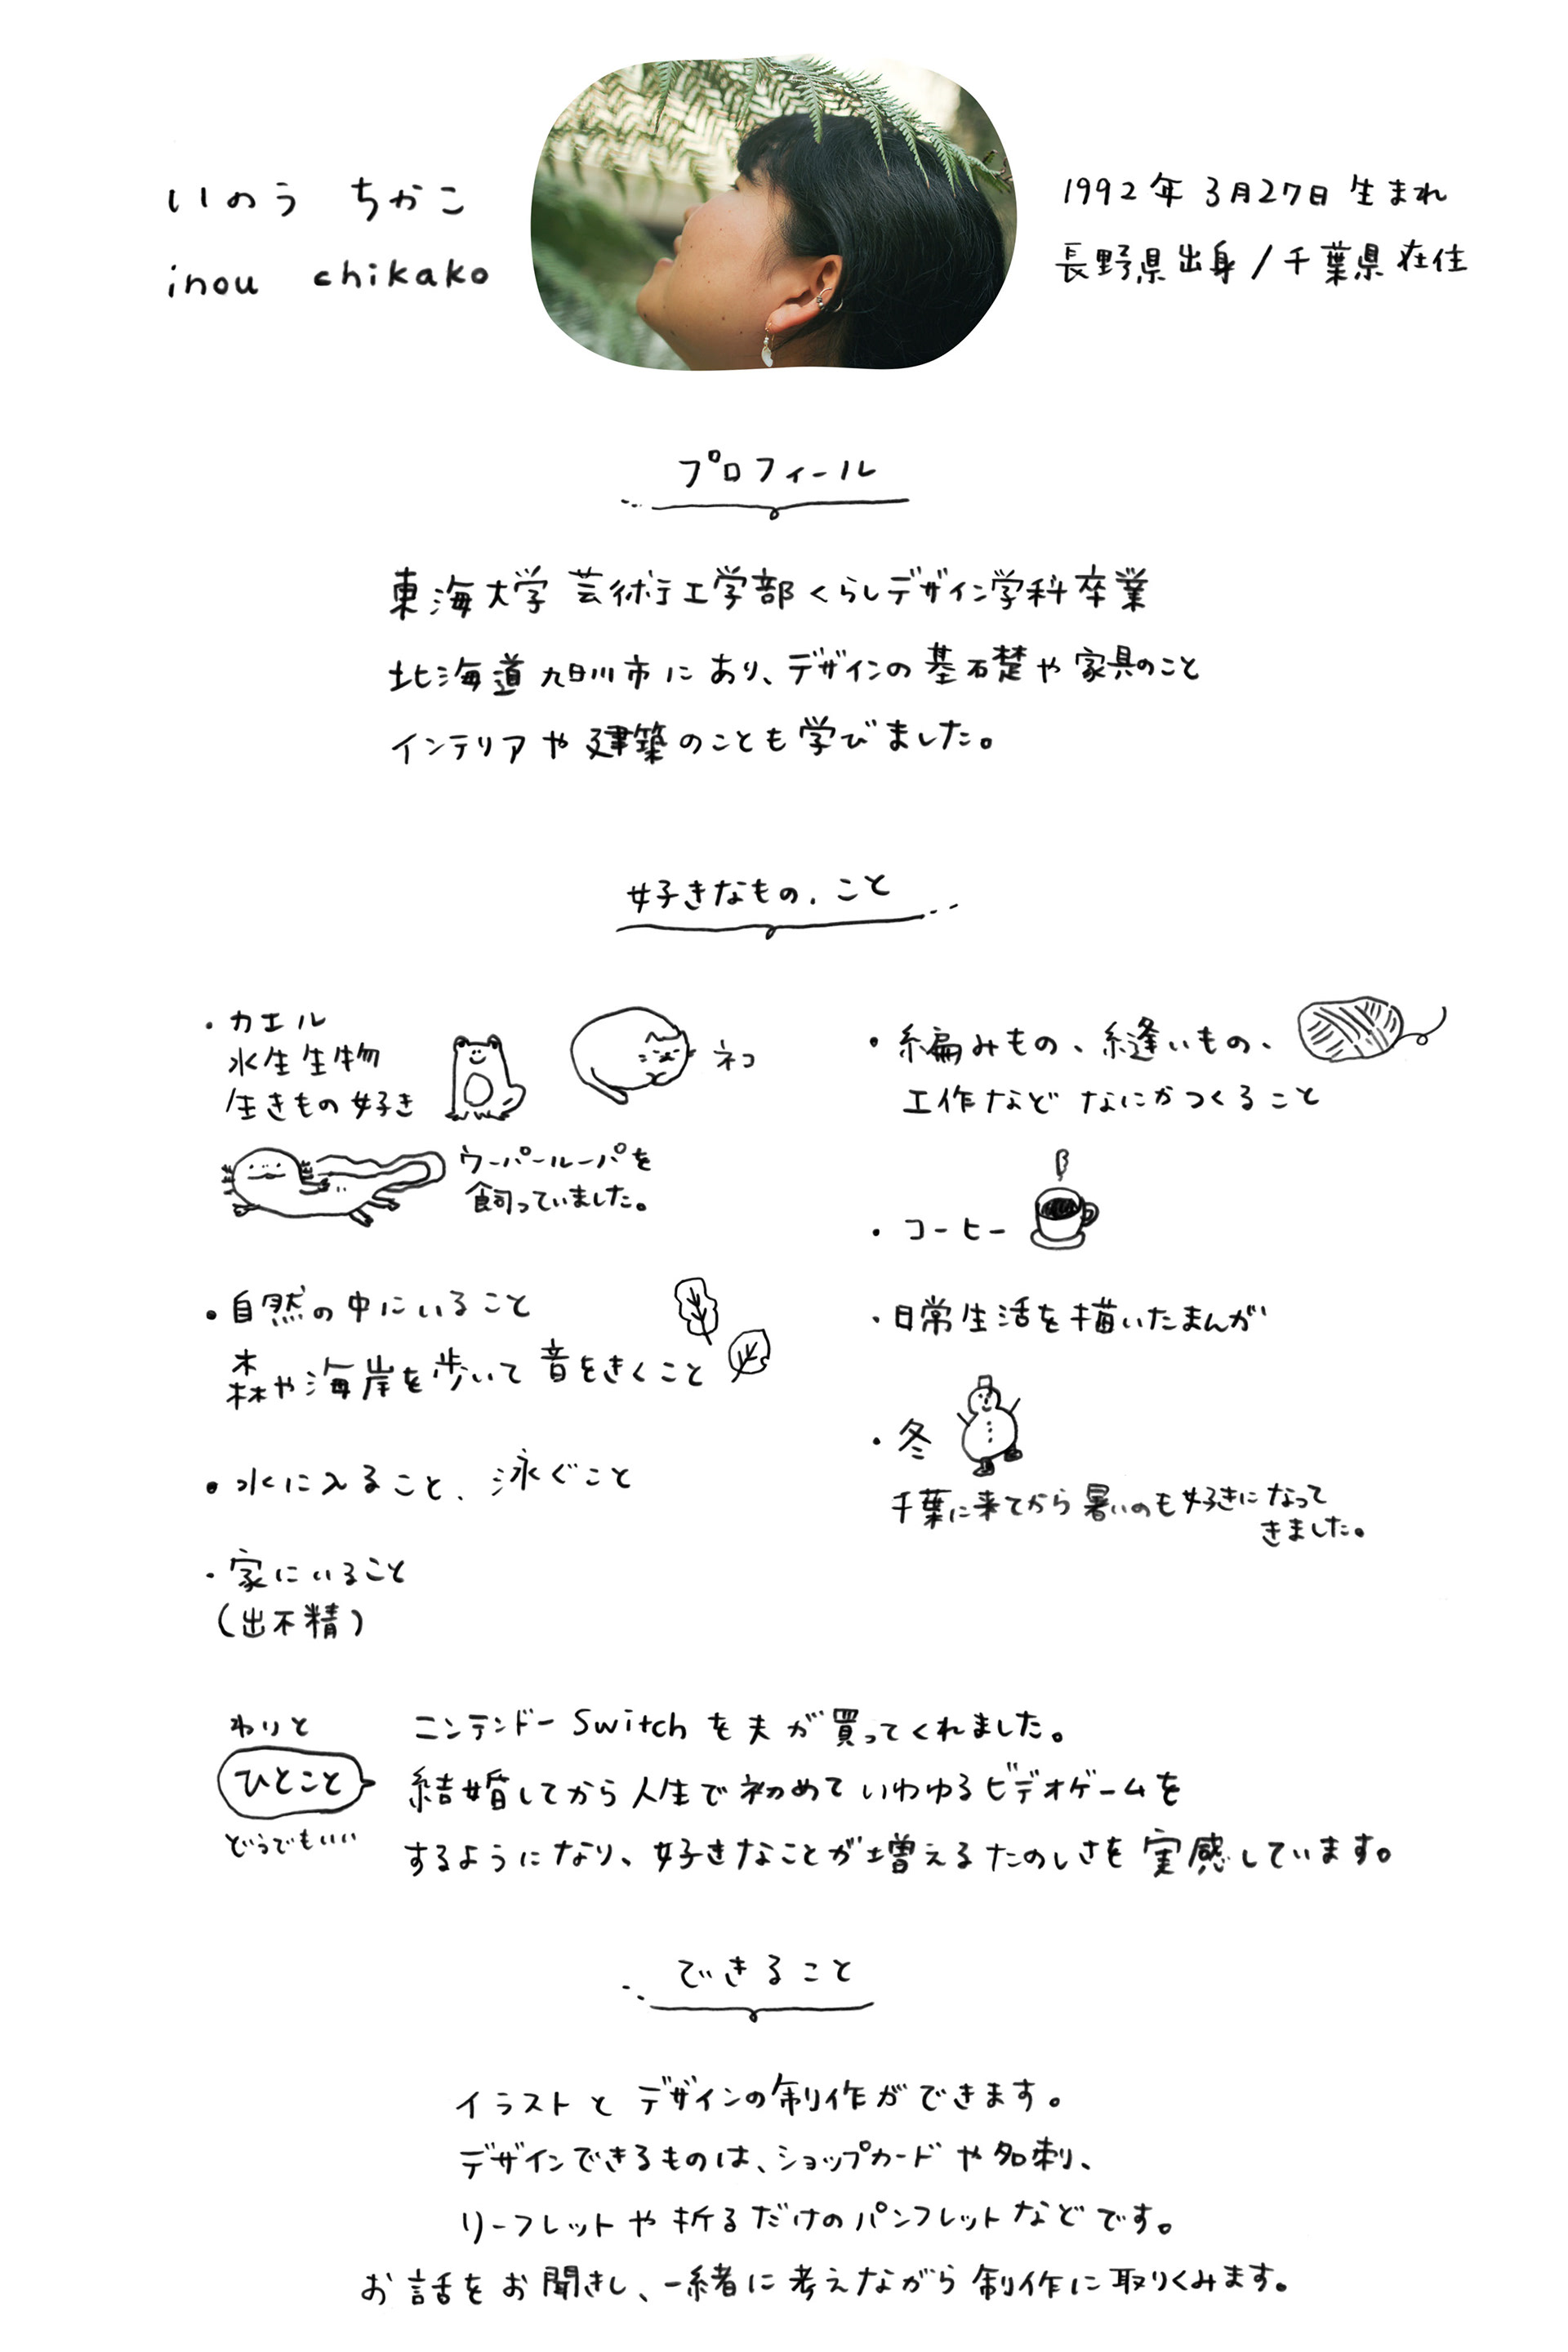 いのう ちかこ
inou chikako
1992年 3月27日 生まれ
長野県出身 / 千葉県在住
プロフィール
東海大学 芸術工学部 くらしデザイン学科 卒業
北海道 旭川市に あり、デザインの 基礎や 家具のこと
インテリアや 建築のことも 学びました。
好きなもの、こと
・カエル
水生生物
生きもの好き
ネコ
ウーパールーパを
飼っていました。
・自然の中にいること
森や海岸を歩いて 音をきくこと
・水に入ること、泳ぐこと
・家にいること
(出不精)
・編みもの、縫いもの、
工作など なにかつくること
・コーヒー
・日常生活を描いたまんが
・冬
千葉に来てから 暑いのも好きに なって
きました。
わりと
ひとこと
どうでもいい
ニンテンドー Switch を夫が買ってくれました。
結婚してから 人生で 初めて いわゆる ビデオゲームを
するようになり、好きなことが増える たのしさを 実感しています。
できること
イラスト と デザインの制作が できます。
デザインできるものは、ショップカードや名刺、
リーフレットや 折るだけの パンフレットなどです。
お話を お聞きし、一緒に 考えながら 制作に 取りくみます。